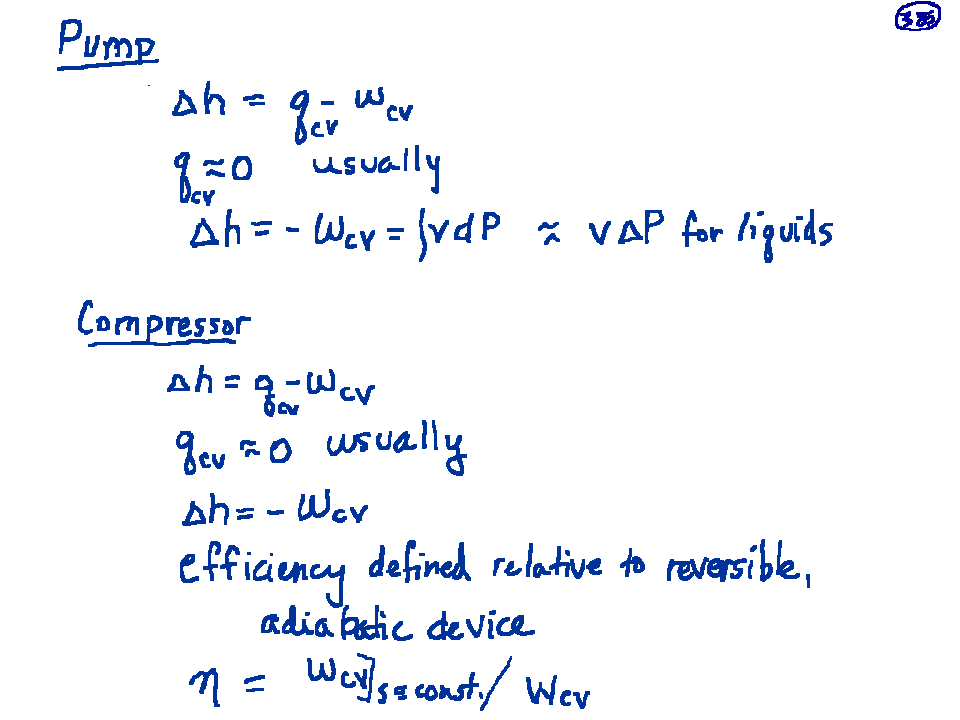 Pump
Δh = q_cv - w_cv
q_cv ≈ 0 usually
Δh = - w_cv = ∫vdP ≈ vΔP for liquids
Compressor
Δh = q_cv - w_cv
q_cv ≈ 0 usually
Δh = - w_cv
efficiency defined relative to reversible,
adiabatic device
η = w_cv]s=const. / w_cv